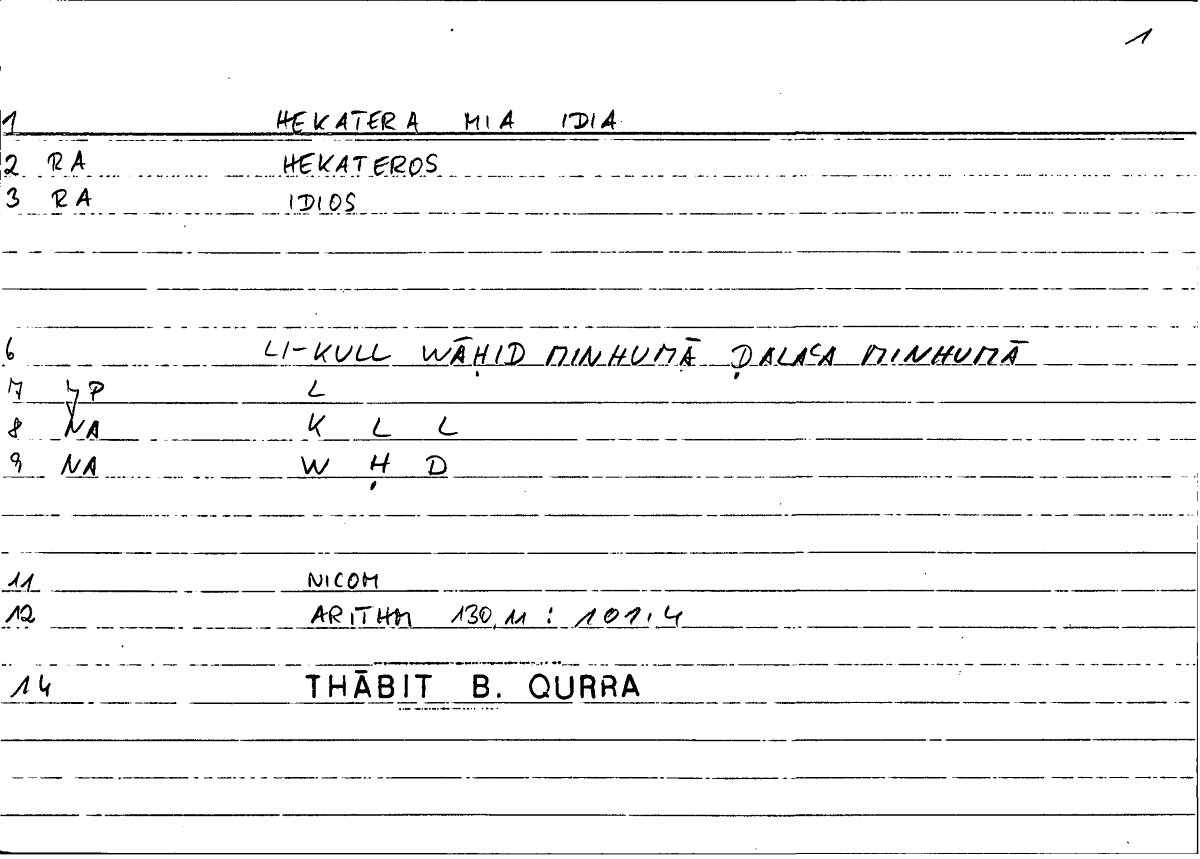 1
1 HEKATERA MIA IDIA
2 RA HEKATEROS
3 RA IDIOS
6 LI-KULL WĀḤID MINHUMĀ ḌALAʿA MINHUMĀ
7 P L
8 NA K L L
9 NA W Ḥ D
11 NICOM
12 ARITHM 130,11 : 101,4
14 THĀBIT B. QURRA